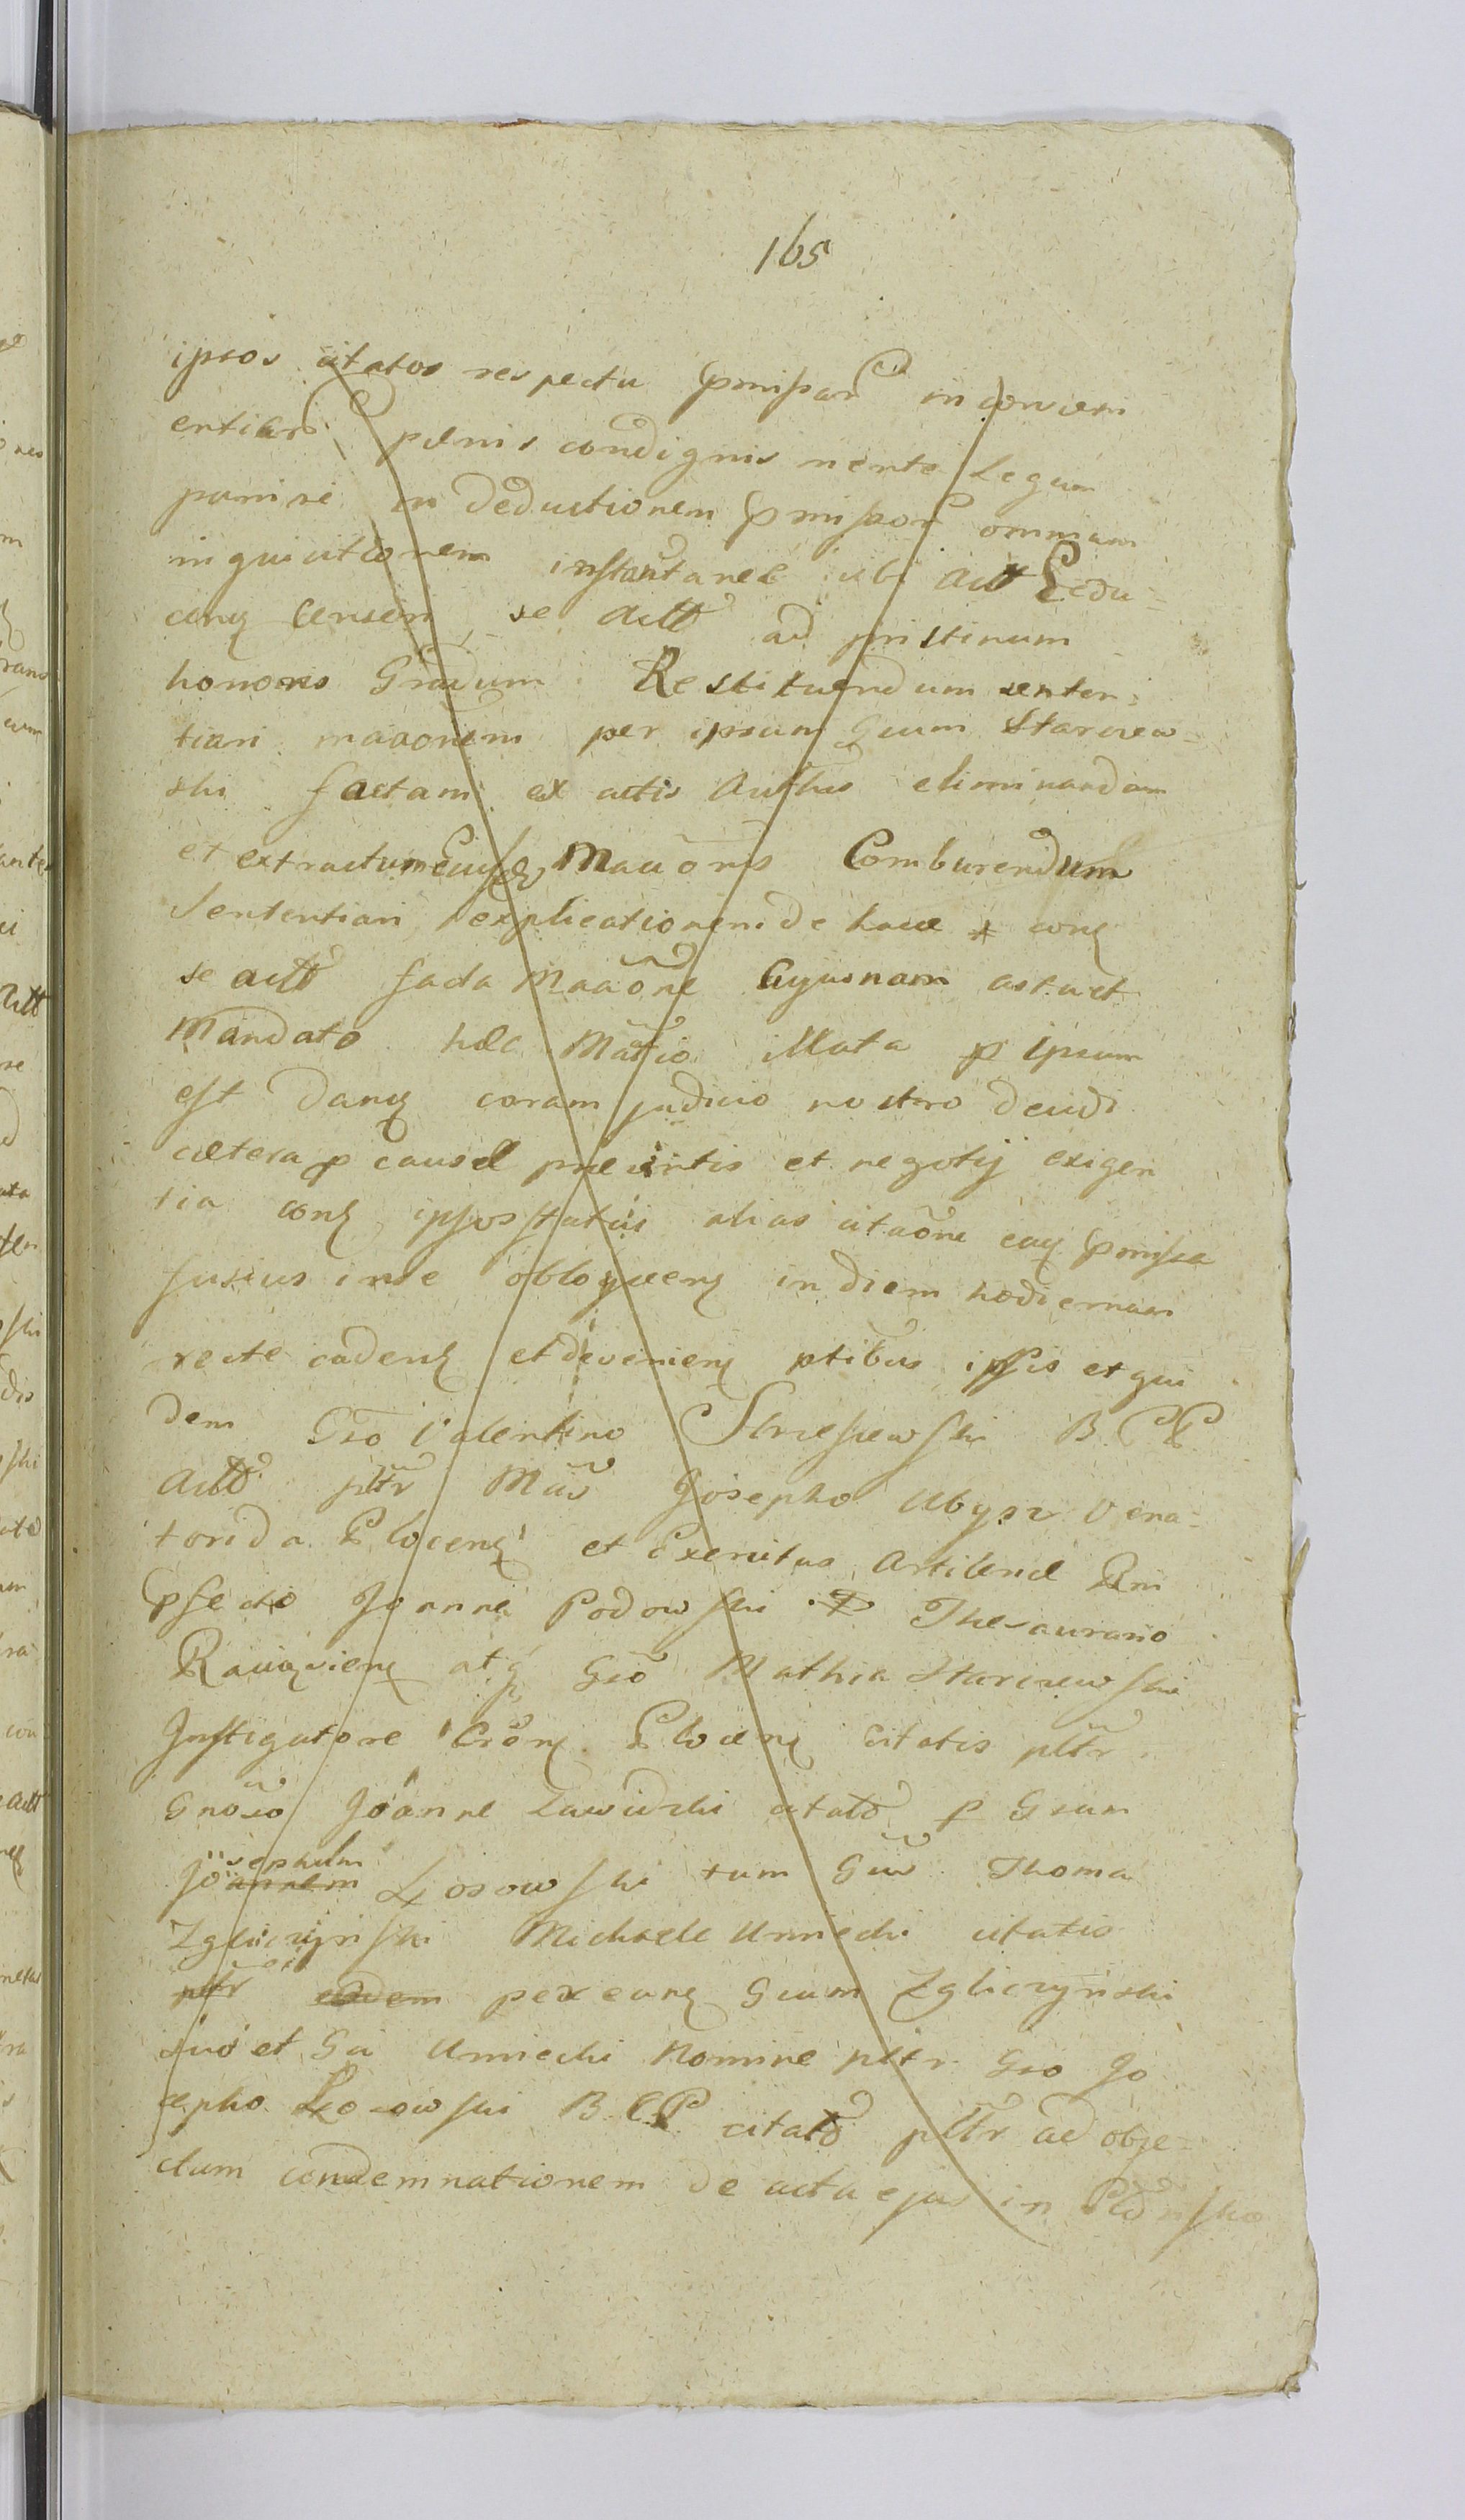 165
ipsos citatos respectu pmissar in conveni
entiar pœnis condignis mente Legum
puniri in deductionem pmissor omnium
inquisitionem instantanee ubi ActLedu-
cenq censeri se Actt ad pristinum
honoris Gradum Restituendum senten-
tiari maãonem per ipsum Gum Starczew-
ski factam ex actis Authis eliminandam
et extractum Eiusd Maãonis Comburendum
Sententiari explicationem de hacce conq
se actt facta Maãone Cujusnam astact
Mandato hæc Matio illata p Ipsum
est Danq coram judicio nostro decidi
cætera p causæ præsentis et negotij exigen
tia conq ipsos status alias citaõne eaq pmissa
fusius in se obloquenq in diem hodiernam
recte cadenq et devenienq ptibus ipsis et qui
dem Gso Valentino B. C. P.
Actt pltr Mãs Josepho Ubysz Vena-
torida Plocenq et Exercitus Artileriæ Rni
pfecto Joanne Podowski Thesaurario
Ravavienq atq Gso Mathia Starczewski
Instigatore Crõnq Plocenq citatis pltr
Gnoso Joanne Zawidzki citatõ p Gsum
Joannem sephum Łosowski tum Gũs Thoma
Zgliczynski Michaele Umiecki citatis
pltr eodem pexeunq Gsum Zgliczynski
suo et Gsi Umiecki Nomine pltr Gso Jo
sepho Łosowski B. C. P citatõ pltr ad obje-
ctum condemnationem de actu ejus in